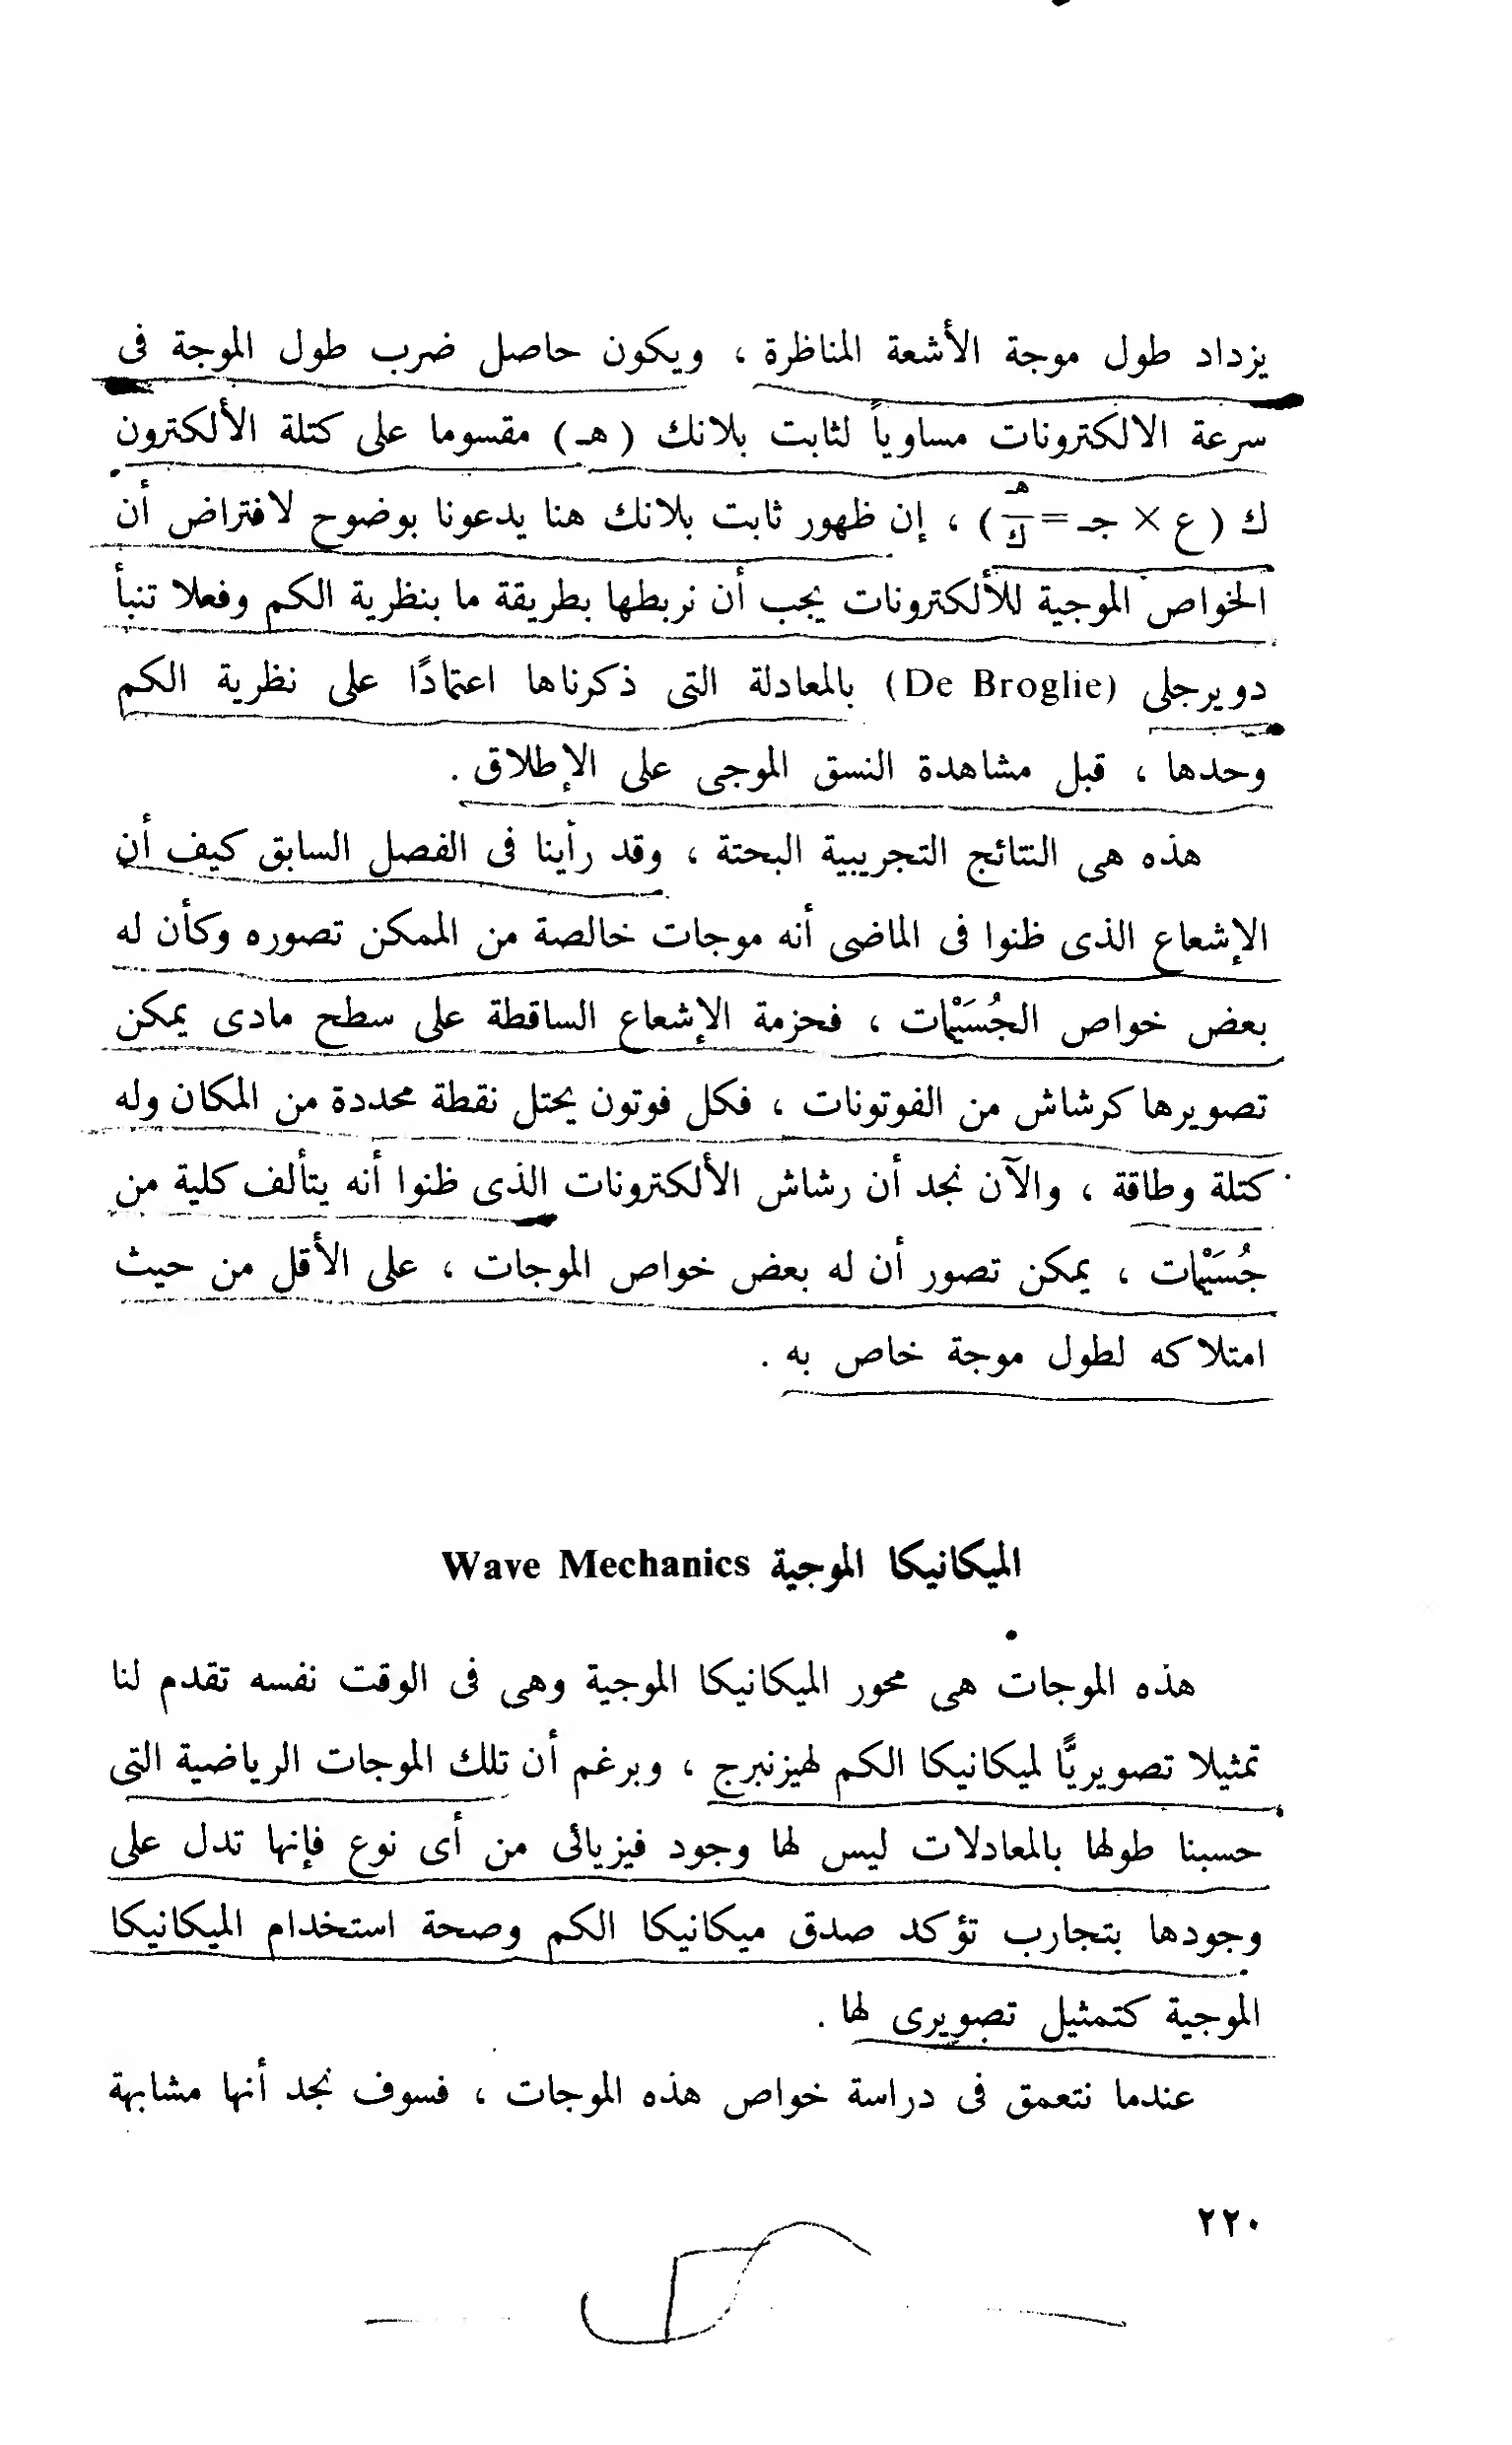 يزداد طول موجة الأشعة المناظرة ، ويكون حاصل ضرب طول الموجة فى
سرعة الالكترونات مساوياً لثابت بلانك (هـ) مقسوما على كتلة الألكترون
ك (ع × جـ = هـ/ك) ، إن ظهور ثابت بلانك هنا يدعونا بوضوح لافتراض أن
الخواص الموجية للألكترونات يجب أن نربطها بطريقة ما بنظرية الكم وفعلا تنبأ
دويرجلى (De Broglie) بالمعادلة التى ذكرناها اعتمادًا على نظرية الكم
وحدها ، قبل مشاهدة النسق الموجى على الإطلاق .
هذه هى النتائج التجريبية البحتة ، وقد رأينا فى الفصل السابق كيف أن
الإشعاع الذى ظنوا فى الماضى أنه موجات خالصة من الممكن تصوره وكأن له
بعض خواص الجُسَيْمات ، فحزمة الإشعاع الساقطة على سطح مادى يمكن
تصويرها كرشاش من الفوتونات ، فكل فوتون يحتل نقطة محددة من المكان وله
كتلة وطاقة ، والآن نجد أن رشاش الألكترونات الذى ظنوا أنه يتألف كلية من
جُسَيْمات ، يمكن تصور أن له بعض خواص الموجات ، على الأقل من حيث
امتلاكه لطول موجة خاص به .
الميكانيكا الموجية Wave Mechanics
هذه الموجات هى محور الميكانيكا الموجية وهى فى الوقت نفسه تقدم لنا
تمثيلا تصويريًّا لميكانيكا الكم لهيزنبرج ، وبرغم أن تلك الموجات الرياضية التى
حسبنا طولها بالمعادلات ليس لها وجود فيزيائى من أى نوع فإنها تدل على
وجودها بتجارب تؤكد صدق ميكانيكا الكم وصحة استخدام الميكانيكا
الموجية كتمثيل تصويرى لها .
عندما نتعمق فى دراسة خواص هذه الموجات ، فسوف نجد أنها مشابهة
٢٢٠